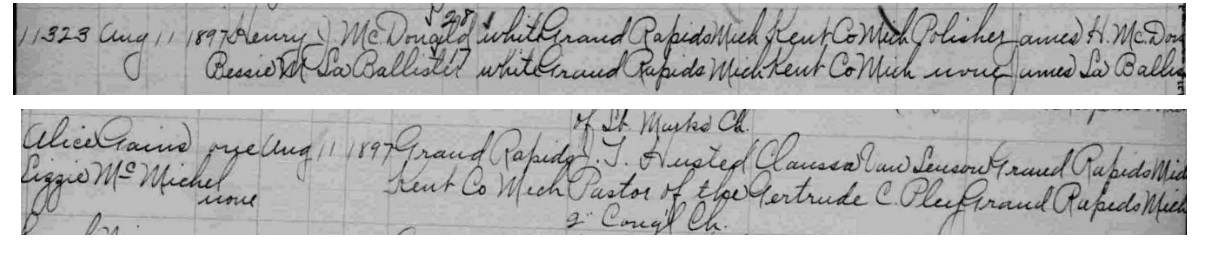 28
11323 Aug 11 1897 Henry J. McDougald white Grand Rapids Mich Kent Co Mich Polisher James H. McDou
Bessie M La Ballister 17 white Grand Rapids Mich Kent Co Mich none James La Ballis
of St. Marks Ch.
Alice Gains one Aug 11 1897 Grand Rapids J. T. Husted Claussa Van Leuson Grand Rapids Mich
Lizzie McMichel none Kent Co Mich Pastor of the Gertrude C. Pley Grand Rapids Mich
2" Cong'l Ch.